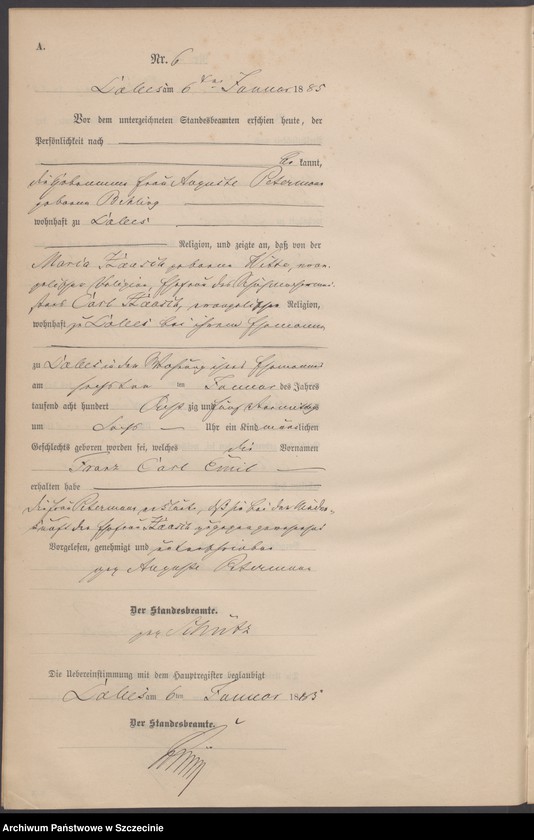 A.
Nr. 6
Labes am 6ten Januar 1885
Vor dem unterzeichneten Standesbeamten erschien heute, der
Persönlichkeit nach
be kannt,
die Hebamme Frau Auguste Petermann
geborene Behling
wohnhaft zu Labes
Religion, und zeigte an, daß von der
Maria Kaasch geborene Witte, evan-
gelischer Religion, Ehefrau des Schuhmachermei-
sters Carl Kaasch, evangelischer Religion,
wohnhaft zu Labes bei ihrem Ehemanne
zu Labes in der Wohnung ihres Ehemannes
am sechsten ten Januar des Jahres
tausend acht hundert acht zig und fünf Vormittags
um sechs Uhr ein Kind männlichen
Geschlechts geboren worden sei, welches die Vornamen
Franz Carl Emil
erhalten habe
die Frau Petermann erklärte, daß sie bei der Nieder-
kunft der Ehefrau Kaasch zugegen gewesen sei
Vorgelesen, genehmigt und unterschrieben
gez Auguste Petermann
Der Standesbeamte.
gez Schütz
Die Uebereinstimmung mit dem Hauptregister beglaubigt
Labes am 6 ten Januar 1885
Der Standesbeamte.
Archiwum Państwowe w Szczecinie